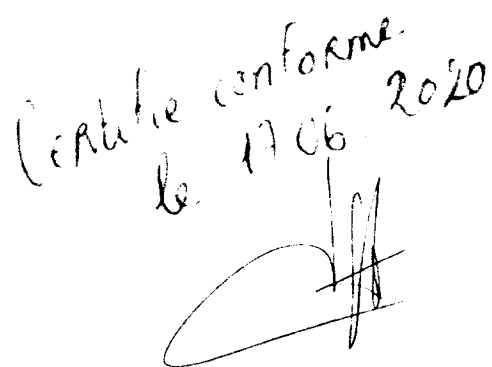 Certifie conforme
le 17 06 2020